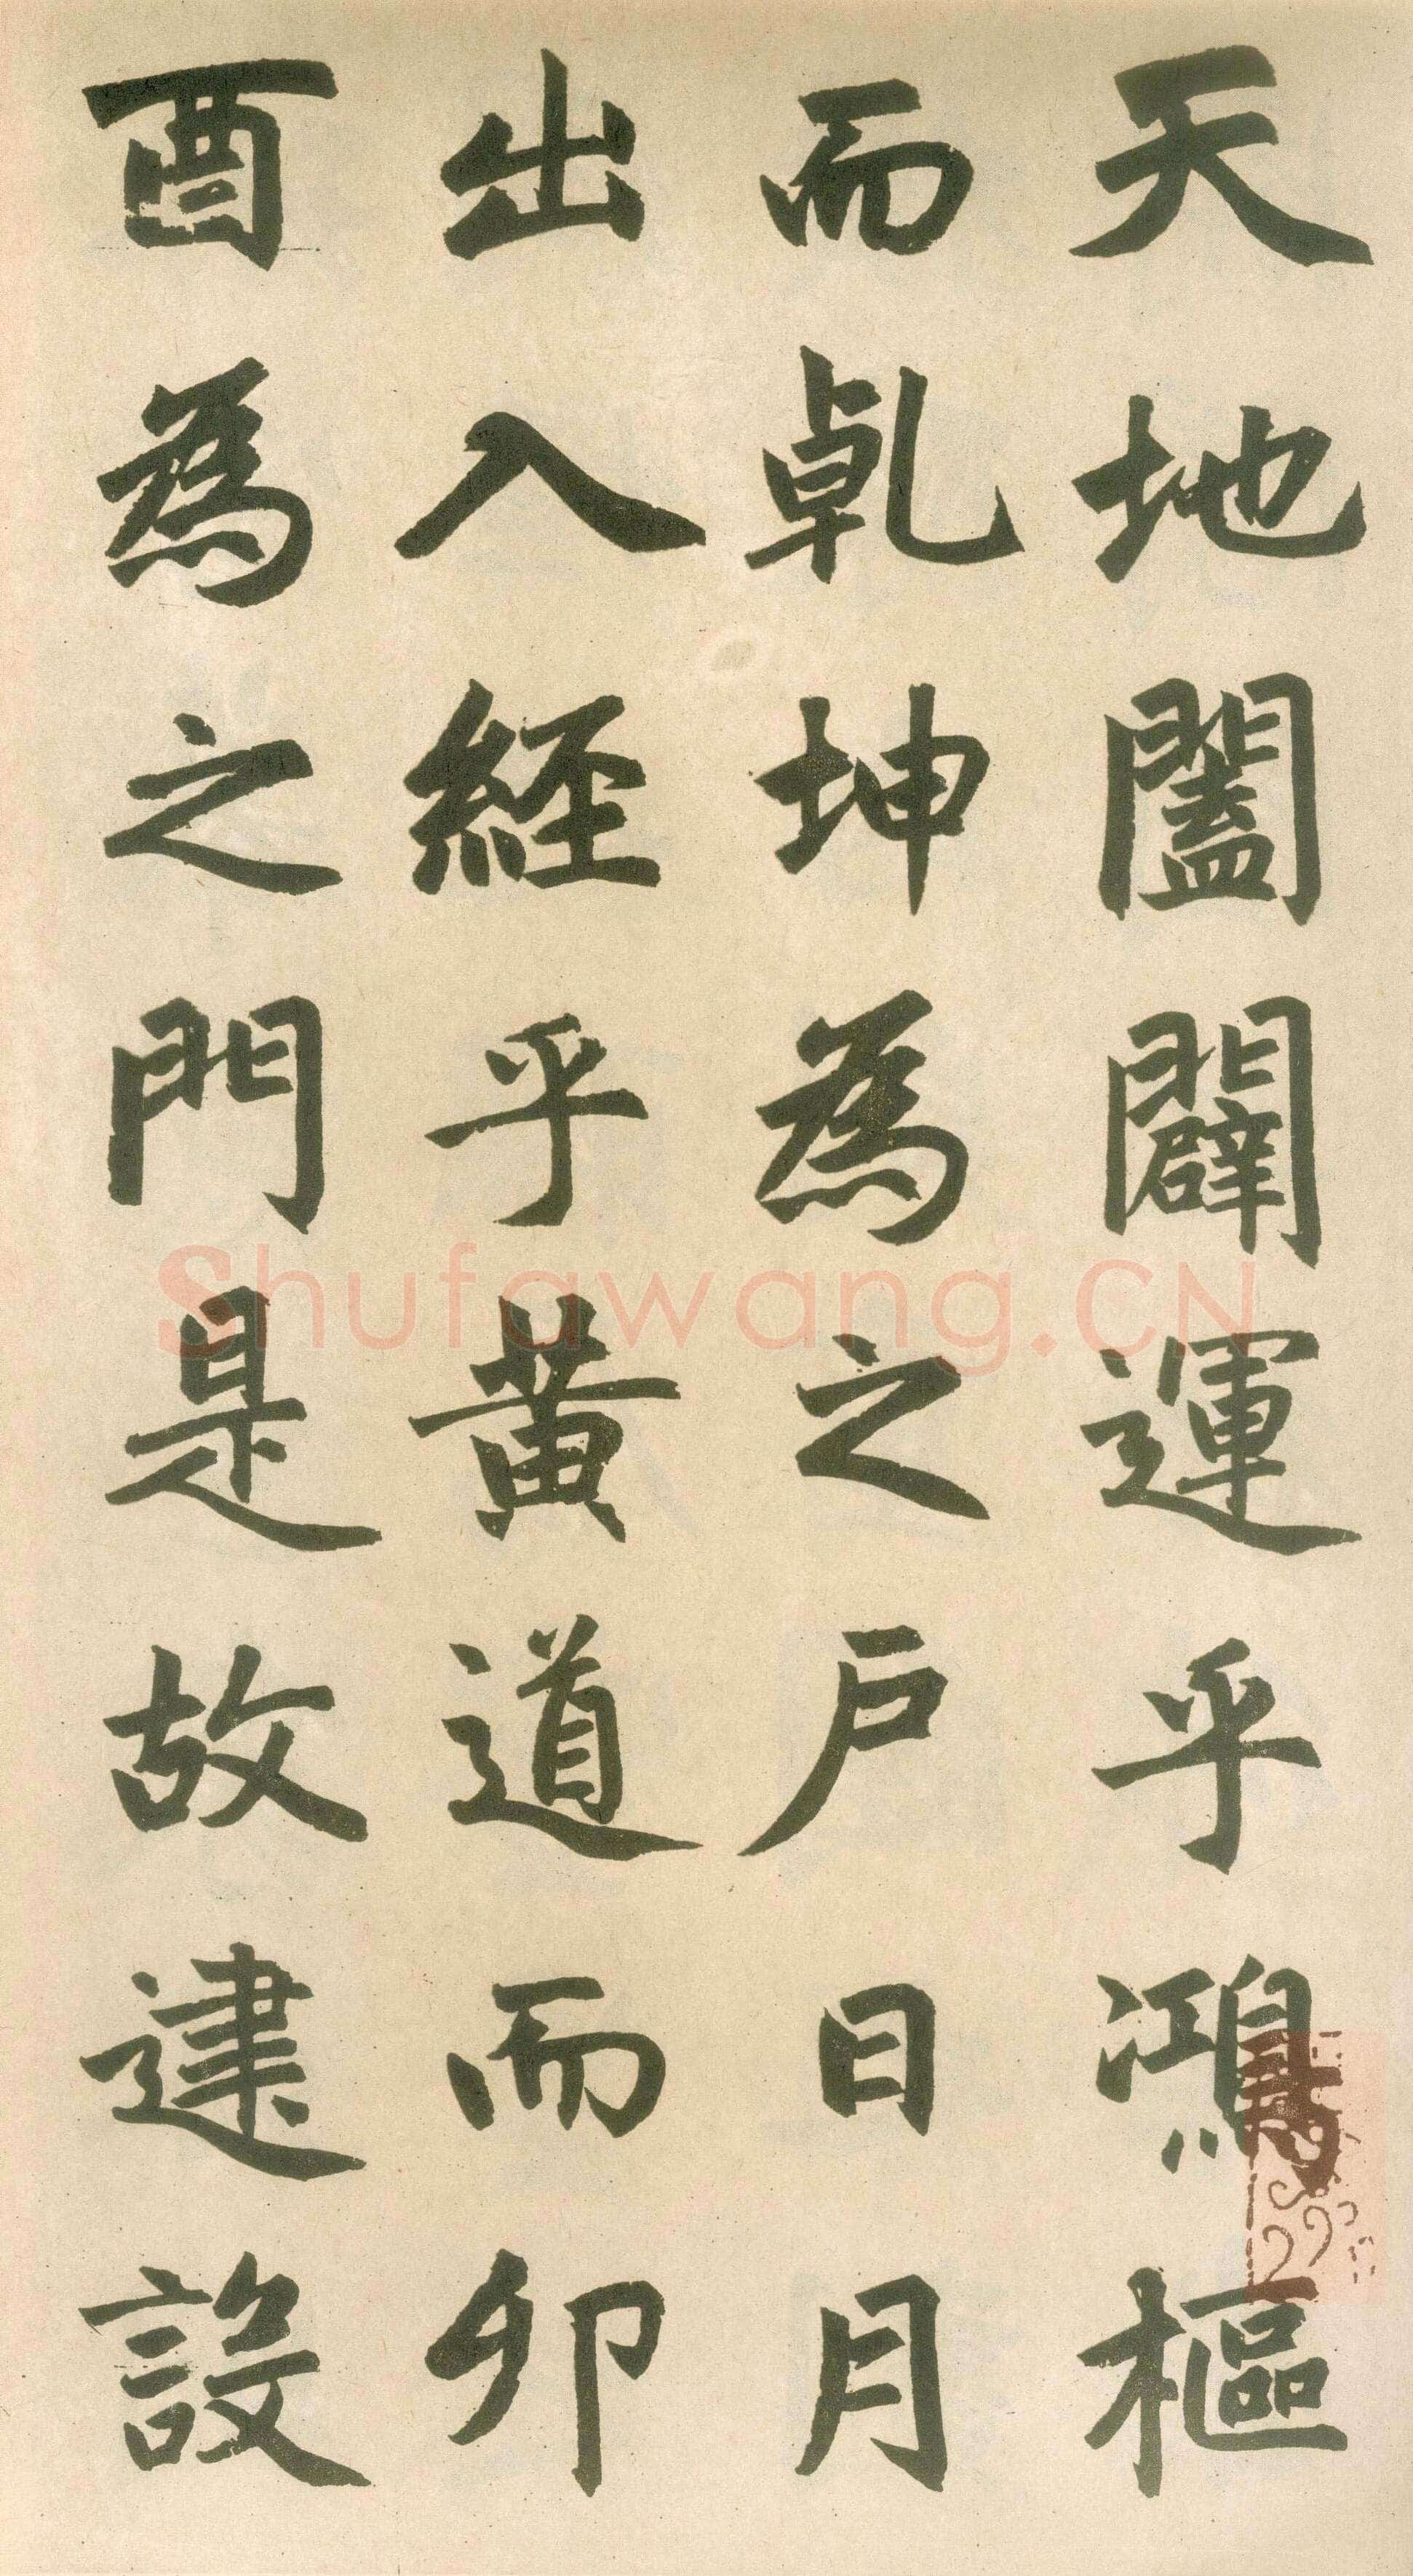 天地闔闢運乎鴻樞
而乹坤為之戶日月
出入經乎黃道而卯
酉為之門是故建設
Shufawang.CN